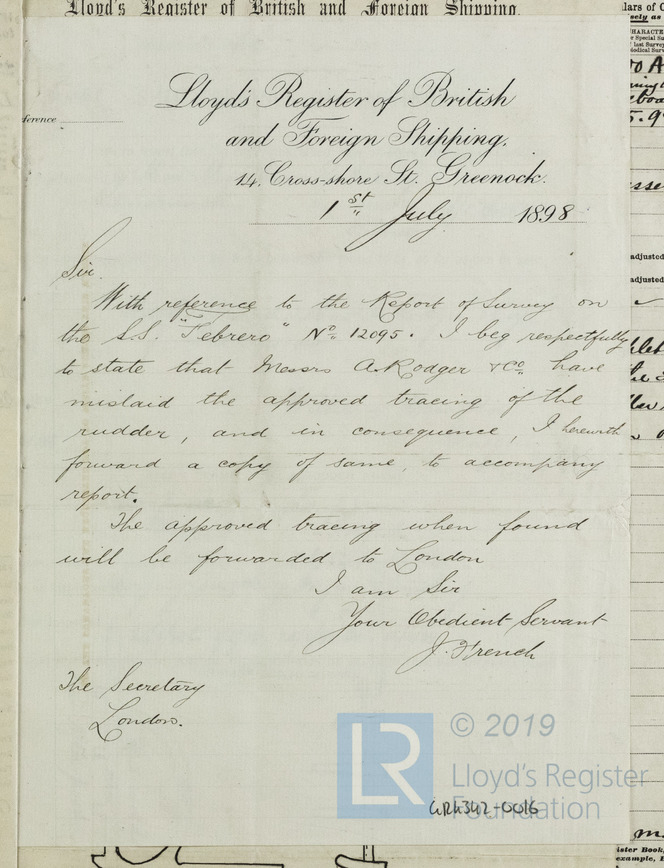 Lloyd's Register of British and Foreign Shipping.
Lloyd's Register of British
and Foreign Shipping.
14, Cross-shore St. Greenock.
1st July 1898
Sir.
With reference to the Report of Survey on
the S.S. "Febrero" No. 12095. I beg respectfully
to state that Messrs A. Rodger & Co. have
mislaid the approved tracing of the
rudder, and in consequence, I herewith
forward a copy of same, to accompany
report.
The approved tracing when found
will be forwarded to London
I am Sir
Your Obedient Servant
J. French
The Secretary
London.
LR
© 2019
Lloyd's Register
Foundation
adjusted
adjusted